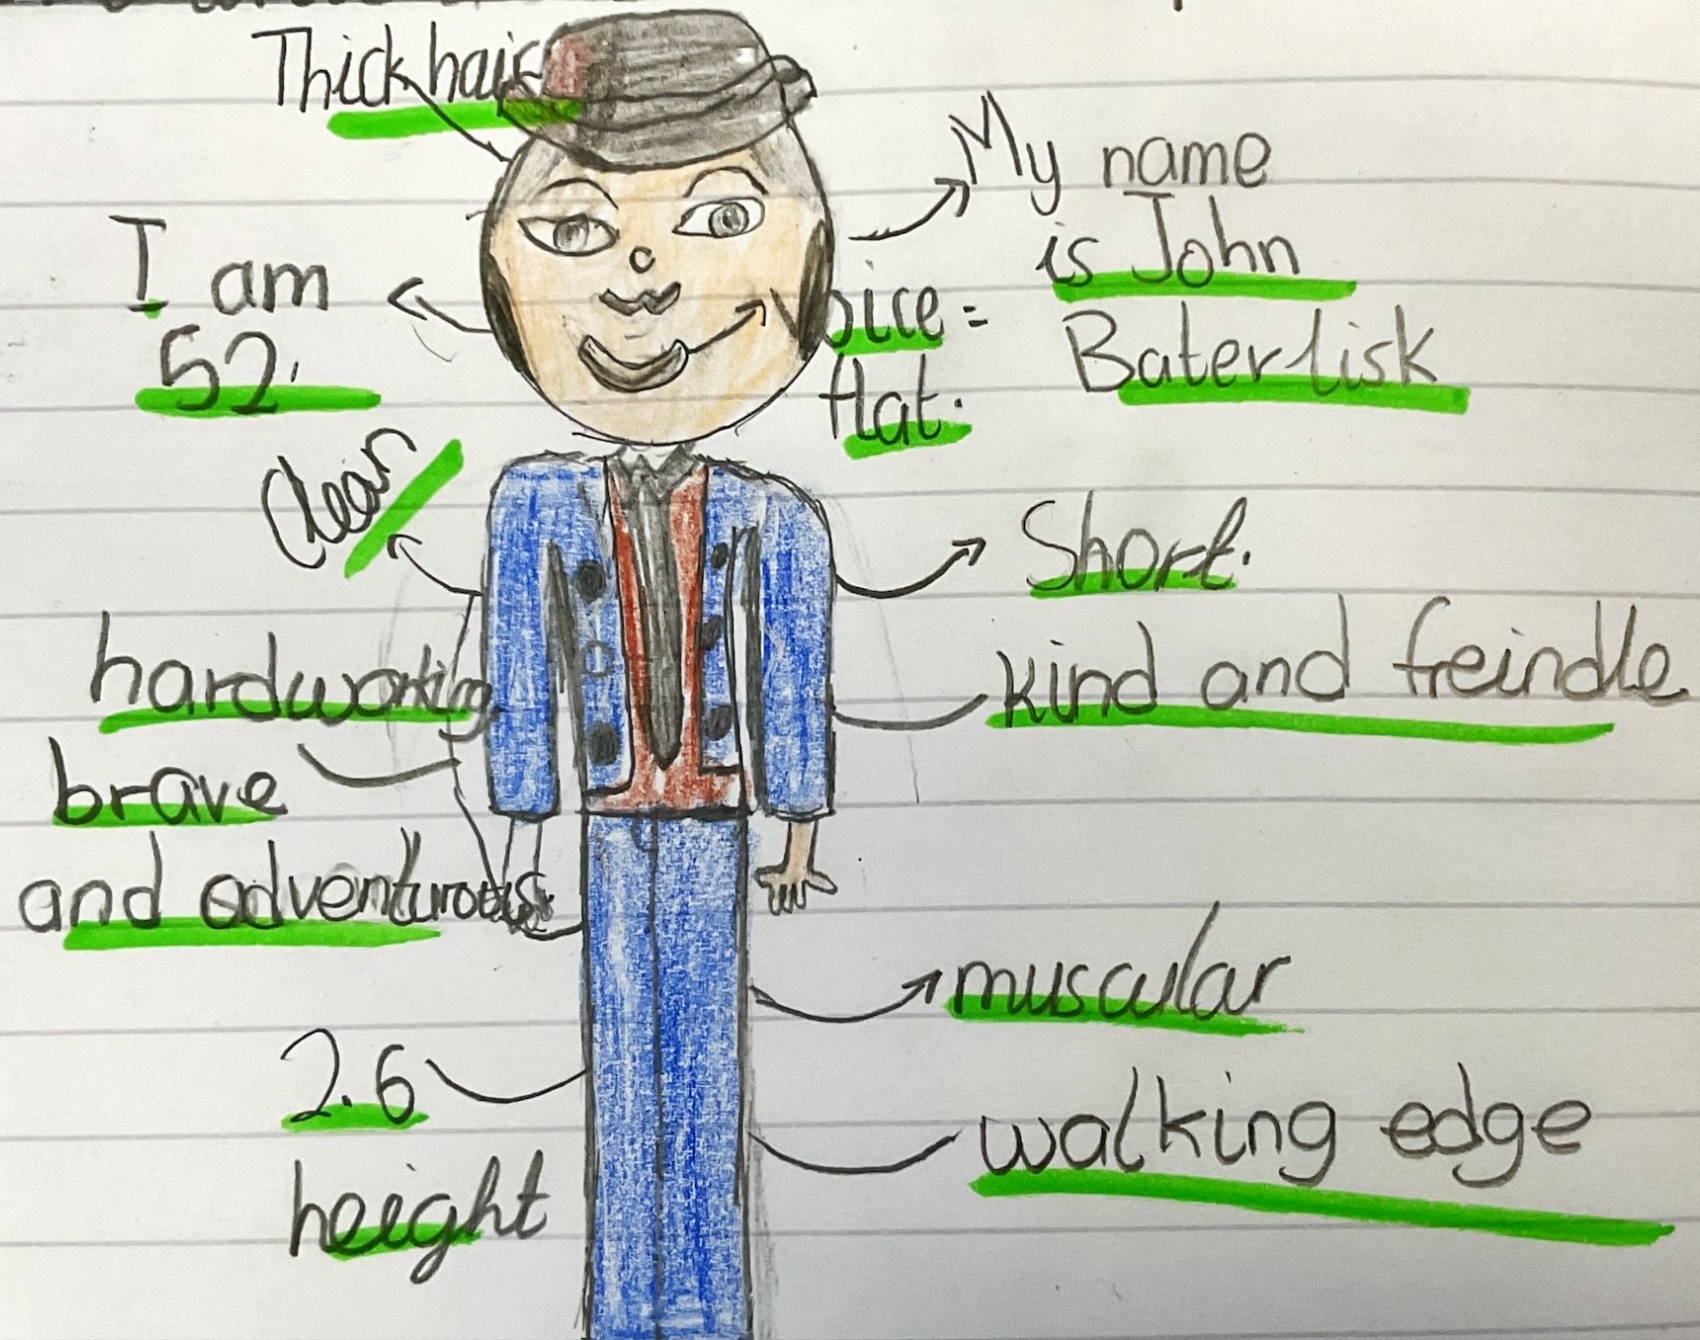 Thick hair
My name
is John
Baterlisk
I am
52.
Voice =
flat.
Clean
Short.
hardworking
kind and freindle
brave
and adventurous
muscular
2.6
height
walking edge